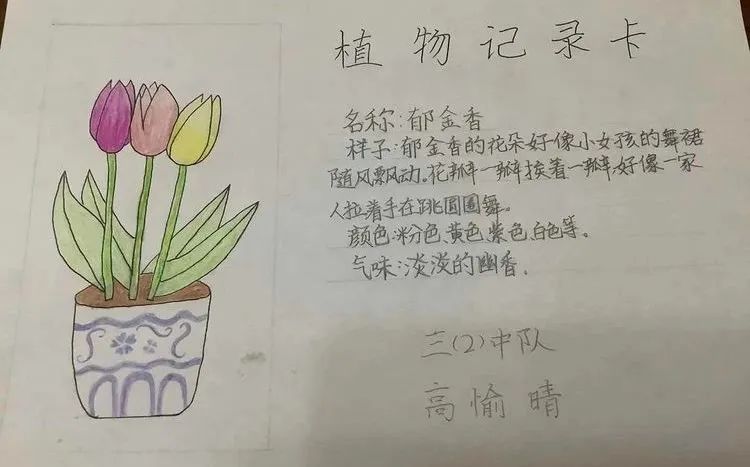 植物记录卡
名称:郁金香
样子:郁金香的花朵好像小女孩的舞裙
随风飘动。花瓣一瓣挨着一瓣,好像一家
人拉着手在跳圆圈舞。
颜色:粉色、黄色、紫色、白色等。
气味:淡淡的幽香.
三(2)中队
高愉晴